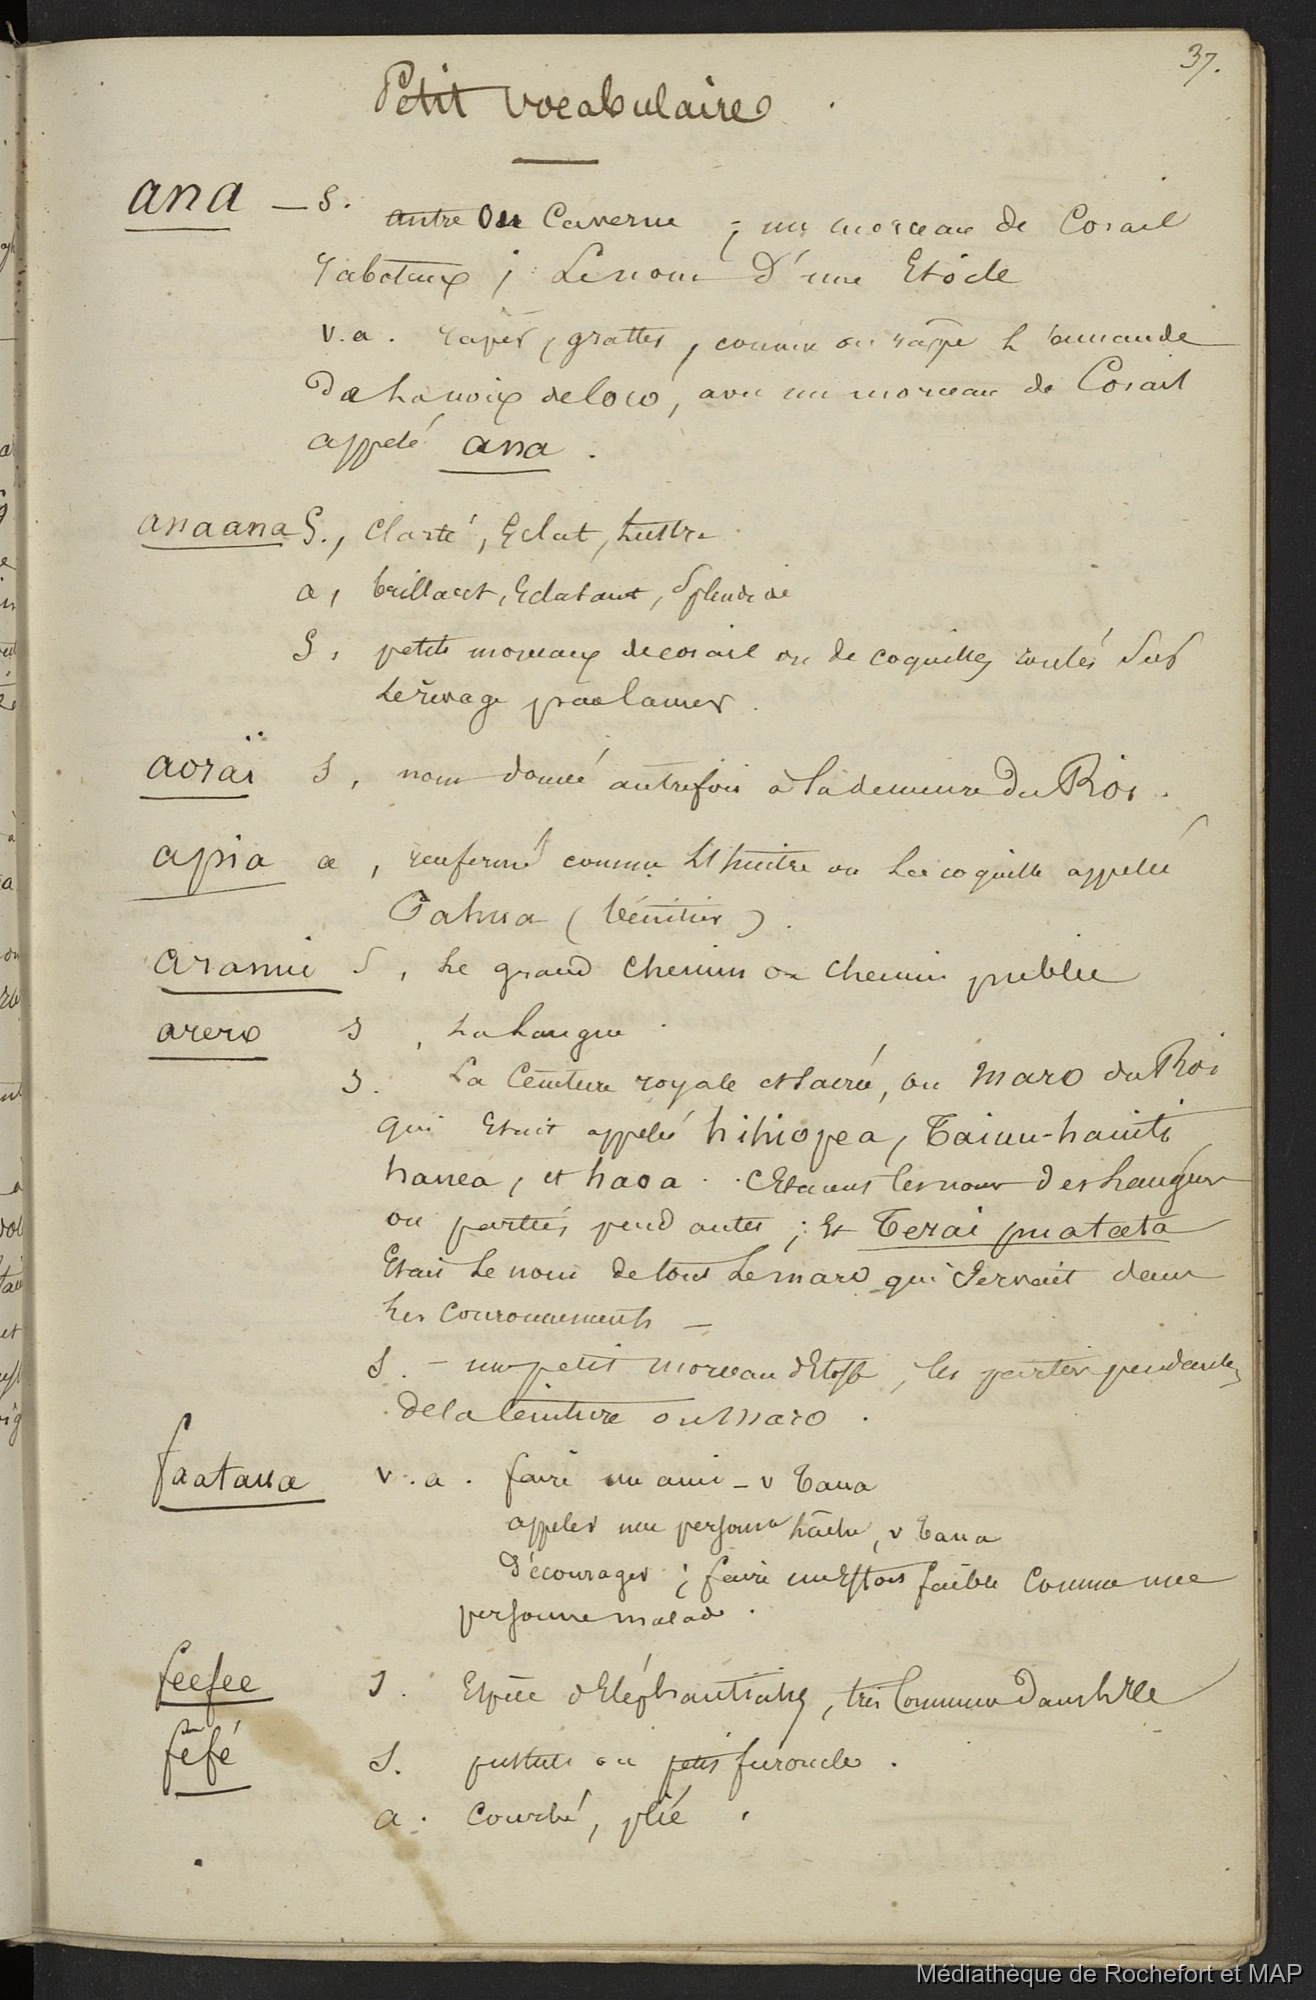 37.
Petit vocabulaire
ana – S. antre ou Caverne ; un morceau de Corail
raboteux ; Le nom d'une Etoile
v.a. raper, gratter, comme on rape l'amande
De la noix de coco, avec un morceau de Corail
appelé ana.
anaana S., Clarté, Eclat, Lustre
a, brillant, Eclatant, Splendide
S, petits morceaux de corail ou de coquilles roulés Sur
Le rivage par la mer.
aoraï S, nom donné autrefois à la demeure Du Roi.
apia a, renfermé comme l'huitre ou la coquille appelée
Pahua (bénitier).
aranui S, Le grand Chemin ou Chemin public
arero S, La Langue.
S. La Ceinture royale et sacrée, ou Maro du Roi
qui Etait appelé hihiopea,
et haoa. Etaient les noms des
ou parties pendantes ; Et Terai puatata
Etait Le nom de tout Le maro qui Servait dans
Les Couronnements –
S. – un petit morceau d'Etoffe, les parties pendantes
de la Ceinture ou Maro.
faataua v.a. faire un ami – v Taua
appeler une personne lâche, v Taua
Décourager ; faire un Estoa faible Comme une
personne malade.
feefee S. Espèce d'Eléphantiasis, très Commune Dans l'Ile
féfé S. pustule ou petit furoncle.
a. Courbé, plié.
Médiathèque de Rochefort et MAP